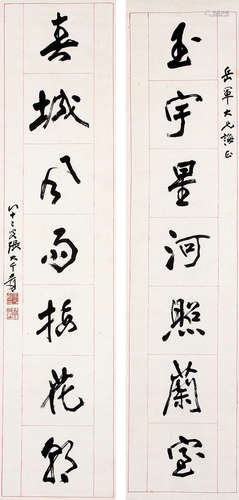 玉宇星河照蘭室
岳軍大兄誨正
春城風雨接花朝
八十二叟張大千爰